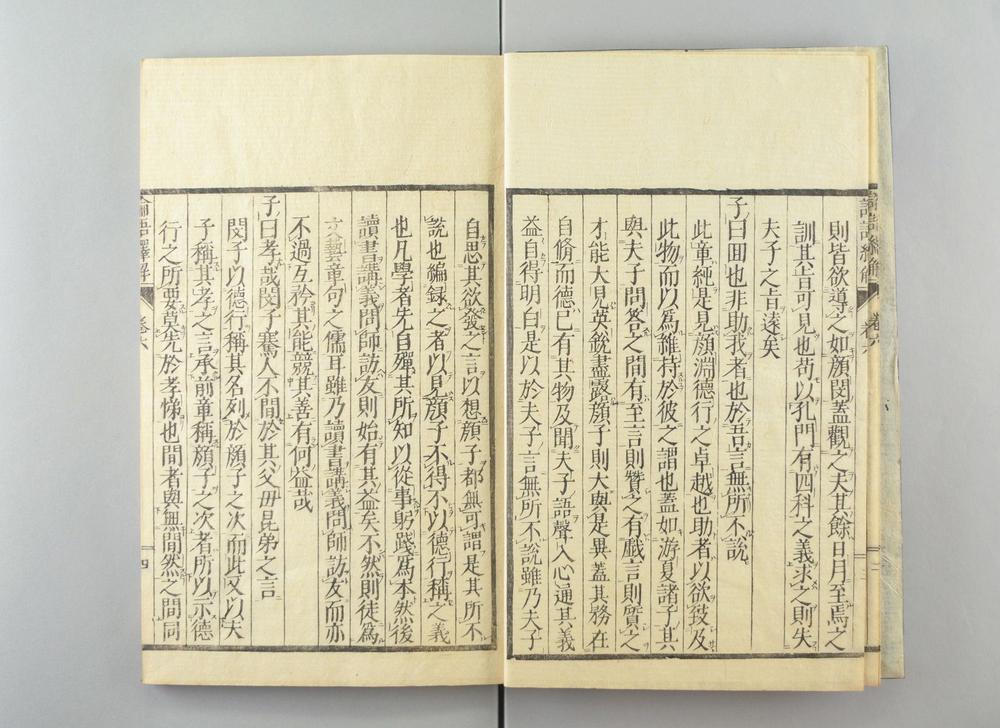 則皆欲導之如顔閔蓋觀之夫其餘日月至焉之
訓其旨可見也苟以孔門有四科之義求之則失
夫子之旨遠矣
子曰回也非助我者也於吾言無所不說
此章純是見顔淵德行之卓越也助者以欲致及
此物而以爲維持於彼之謂也蓋如游夏諸子其
與夫子問答之間有至言則贊之有戲言則質之
才能大見英銳盡露顔子則大與是異蓋其務在
自脩而德已有其物及聞夫子語聲入心通其義
益自得明白是以於夫子言無所不說雖乃夫子
自思其欲發之言以想顔子都無可謂是其所不
說也編録之者以見顔子不得不以德行稱之義
也凡學者先自殫其所知以從事躬踐爲本然後
讀書講義問師訪友則始有其益矣不然則徒爲
文藝章句之儒耳雖乃讀書講義問師訪友而亦
不過互矜其能競其善有何益哉
子曰孝哉閔子騫人不間於其父母昆弟之言
閔子以德行稱其名列於顔子之次而此又以夫
子稱其孝之言承前章稱顔子之次者所以示德
行之所要莫先於孝悌也間者與無間然之間同
論語繹解
卷六
四